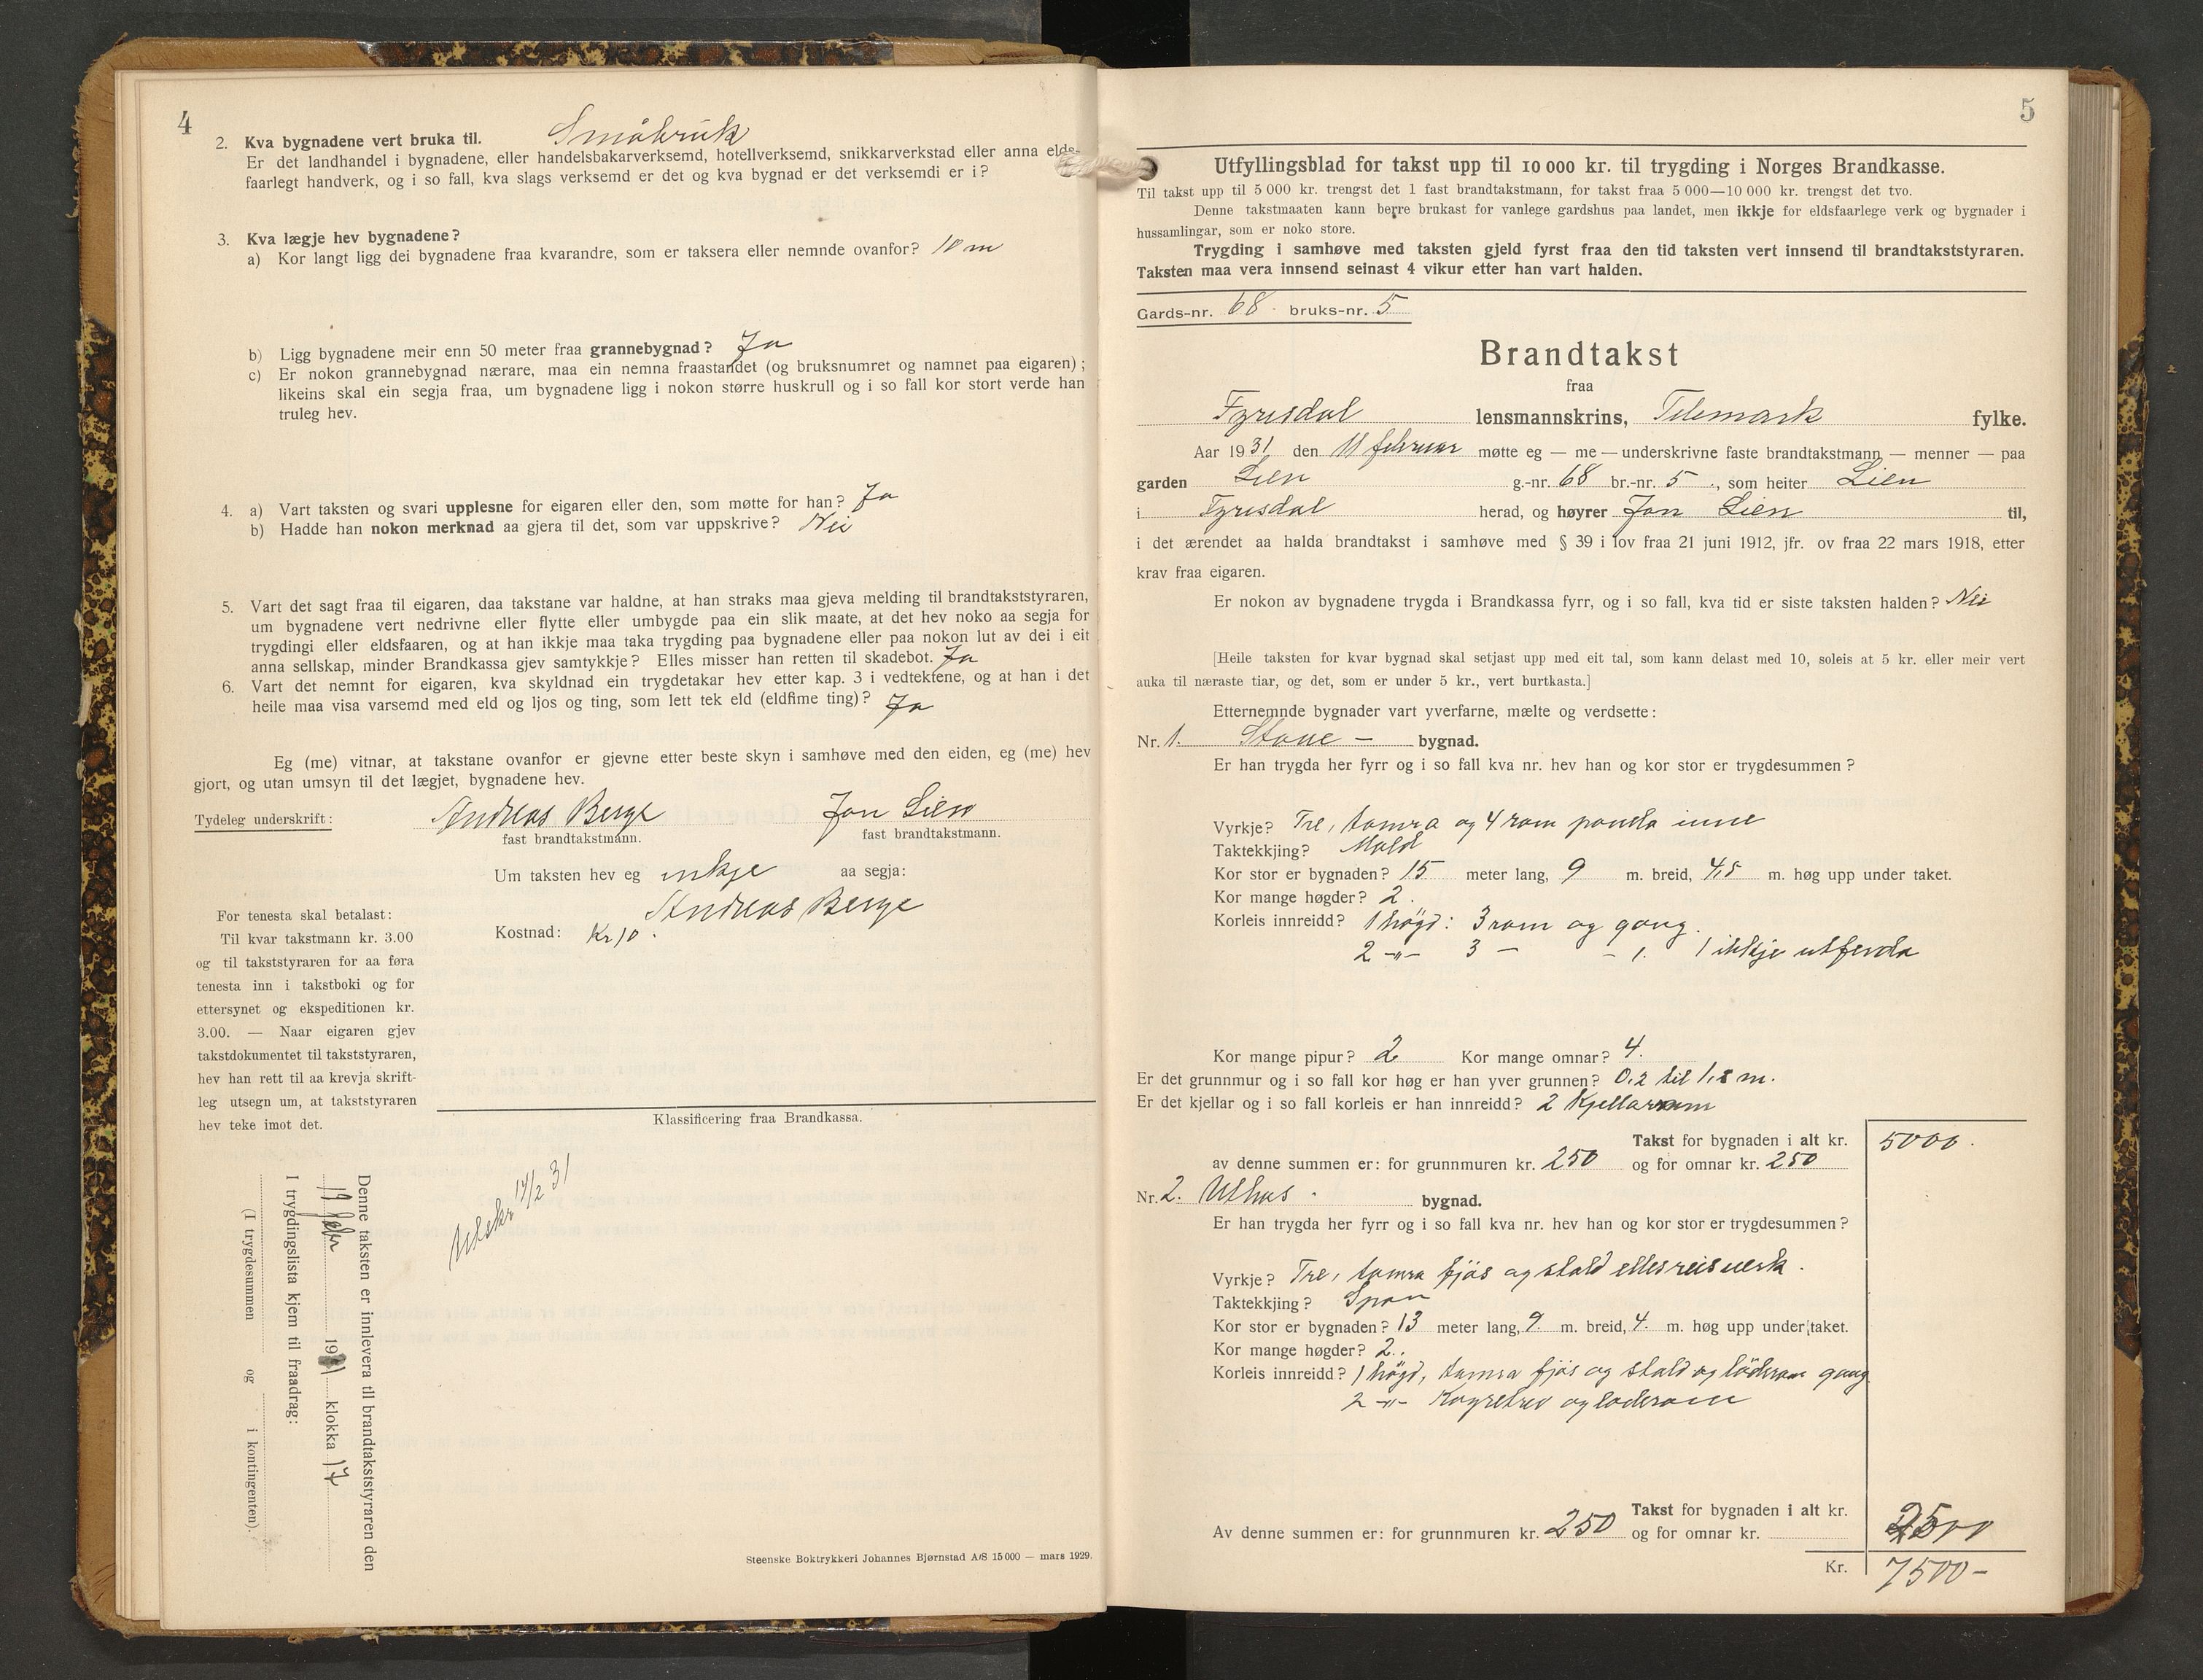 4
2. Kva bygnadene vert bruka til. Småbruk
Er det landhandel i bygnadene, eller handelsbakarverksemd, hotellverksemd, snikkarverkstad eller anna elds-
faarlegt handverk, og i so fall, kva slags verksemd er det og kva bygnad er det verksemdi er i?
3. Kva lægje hev bygnadene?
a) Kor langt ligg dei bygnadene fraa kvarandre, som er taksera eller nemnde ovanfor? 10 m
b) Ligg bygnadene meir enn 50 meter fraa grannebygnad? Ja
c) Er nokon grannebygnad nærare, maa ein nemna fraastandet (og bruksnumret og namnet paa eigaren);
likeins skal ein segja fraa, um bygnadene ligg i nokon større huskrull og i so fall kor stort verde han
truleg hev.
4. a) Vart taksten og svari upplesne for eigaren eller den, som møtte for han? Ja
b) Hadde han nokon merknad aa gjera til det, som var uppskrive? Nei
5. Vart det sagt fraa til eigaren, daa takstane var haldne, at han straks maa gjeva melding til brandtakststyraren,
um bygnadene vert nedrivne eller flytte eller umbygde paa ein slik maate, at det hev noko aa segja for
trygdingi eller eldsfaaren, og at han ikkje maa taka trygding paa bygnadene eller paa nokon lut av dei i eit
anna sellskap, minder Brandkassa gjev samtykkje? Elles misser han retten til skadebot. Ja
6. Vart det nemnt for eigaren, kva skyldnad ein trygdetakar hev etter kap. 3 i vedtektene, og at han i det
heile maa visa varsemd med eld og ljos og ting, som lett tek eld (eldfime ting)? Ja
Eg (me) vitnar, at takstane ovanfor er gjevne etter beste skyn i samhøve med den eiden, eg (me) hev
gjort, og utan umsyn til det lægjet, bygnadene hev.
Tydeleg underskrift: Andreas Berge Jon Lien
fast brandtakstmann. fast brandtakstmann.
Um taksten hev eg inkje aa segja:
Andreas Berge
Kostnad: Kr 10.
For tenesta skal betalast:
Til kvar takstmann kr. 3.00
og til takststyraren for aa føra
tenesta inn i takstboki og for
ettersynet og ekspeditionen kr.
3.00. — Naar eigaren gjev
takstdokumentet til takststyraren,
hev han rett til aa krevja skrift-
leg utsegn um, at takststyraren
hev teke imot det.
Klassificering fraa Brandkassa.
Utskr 14/2 31
Denne taksten er innlevera til brandtakststyraren den
febr 1931 klokka 17
I trygdingslista kjem til fraadrag:
(I trygdesummen og i kontingenten).
Steenske Boktrykkeri Johannes Bjørnstad A/S 15 000 — mars 1929.
5
Utfyllingsblad for takst upp til 10 000 kr. til trygding i Norges Brandkasse.
Til takst upp til 5 000 kr. trengst det 1 fast brandtakstmann, for takst fraa 5 000—10 000 kr. trengst det tvo.
Denne takstmaaten kann berre brukast for vanlege gardshus paa landet, men ikkje for eldsfaarlege verk og bygnader i
hussamlingar, som er noko store.
Trygding i samhøve med taksten gjeld fyrst fraa den tid taksten vert innsend til brandtakststyraren.
Taksten maa vera innsend seinast 4 vikur etter han vart halden.
Gards-nr. 68 bruks-nr. 5
Brandtakst
fraa
Fyresdal lensmannskrins, Telemark fylke.
Aar 1931 den 11 februar møtte eg — me — underskrivne faste brandtakstmann — menner — paa
garden Lien g.-nr. 68 br.-nr. 5, som heiter Lien
i Fyresdal herad, og høyrer Jon Lien til,
i det ærendet aa halda brandtakst i samhøve med § 39 i lov fraa 21 juni 1912, jfr. ov fraa 22 mars 1918, etter
krav fraa eigaren.
Er nokon av bygnadene trygda i Brandkassa fyrr, og i so fall, kva tid er siste taksten halden? Nei
[Heile taksten for kvar bygnad skal setjast upp med eit tal, som kann delast med 10, soleis at 5 kr. eller meir vert
auka til næraste tiar, og det, som er under 5 kr., vert burtkasta.]
Etternemnde bygnader vart yverfarne, mælte og verdsette:
Nr. 1. Stoue — bygnad.
Er han trygda her fyrr og i so fall kva nr. hev han og kor stor er trygdesummen?
Vyrkje? Tre, tømra og 4 rom panela inne
Taktekkjing? Mold
Kor stor er bygnaden? 15 meter lang, 9 m. breid, 4,5 m. høg upp under taket.
Kor mange høgder? 2.
Korleis innreidd? 1 högd: 3 rom og gang.
2 -"- 3 — - 1. 1 ikkje utferda
Kor mange pipur? 2 Kor mange omnar? 4.
Er det grunnmur og i so fall kor høg er han yver grunnen? 0,2 til 1,8 m.
Er det kjellar og i so fall korleis er han innreidd? 2 Kjellarrom
Takst for bygnaden i alt kr. 5000.
av denne summen er: for grunnmuren kr. 250 og for omnar kr. 250
Nr. 2. Uthus. bygnad.
Er han trygda her fyrr og i so fall kva nr. hev han og kor stor er trygdesummen?
Vyrkje? Tre, tømra fjös og stald elles reisverk.
Taktekkjing? Spon
Kor stor er bygnaden? 13 meter lang, 9. m. breid, 4. m. høg upp under taket.
Kor mange høgder? 2.
Korleis innreidd? 1 högd, tømra fjös og stald og löderom gang
2 -"- og loderom
Takst for bygnaden i alt kr. 2500
Av denne summen er: for grunnmuren kr. 250 og for omnar kr.
Kr. 7500-